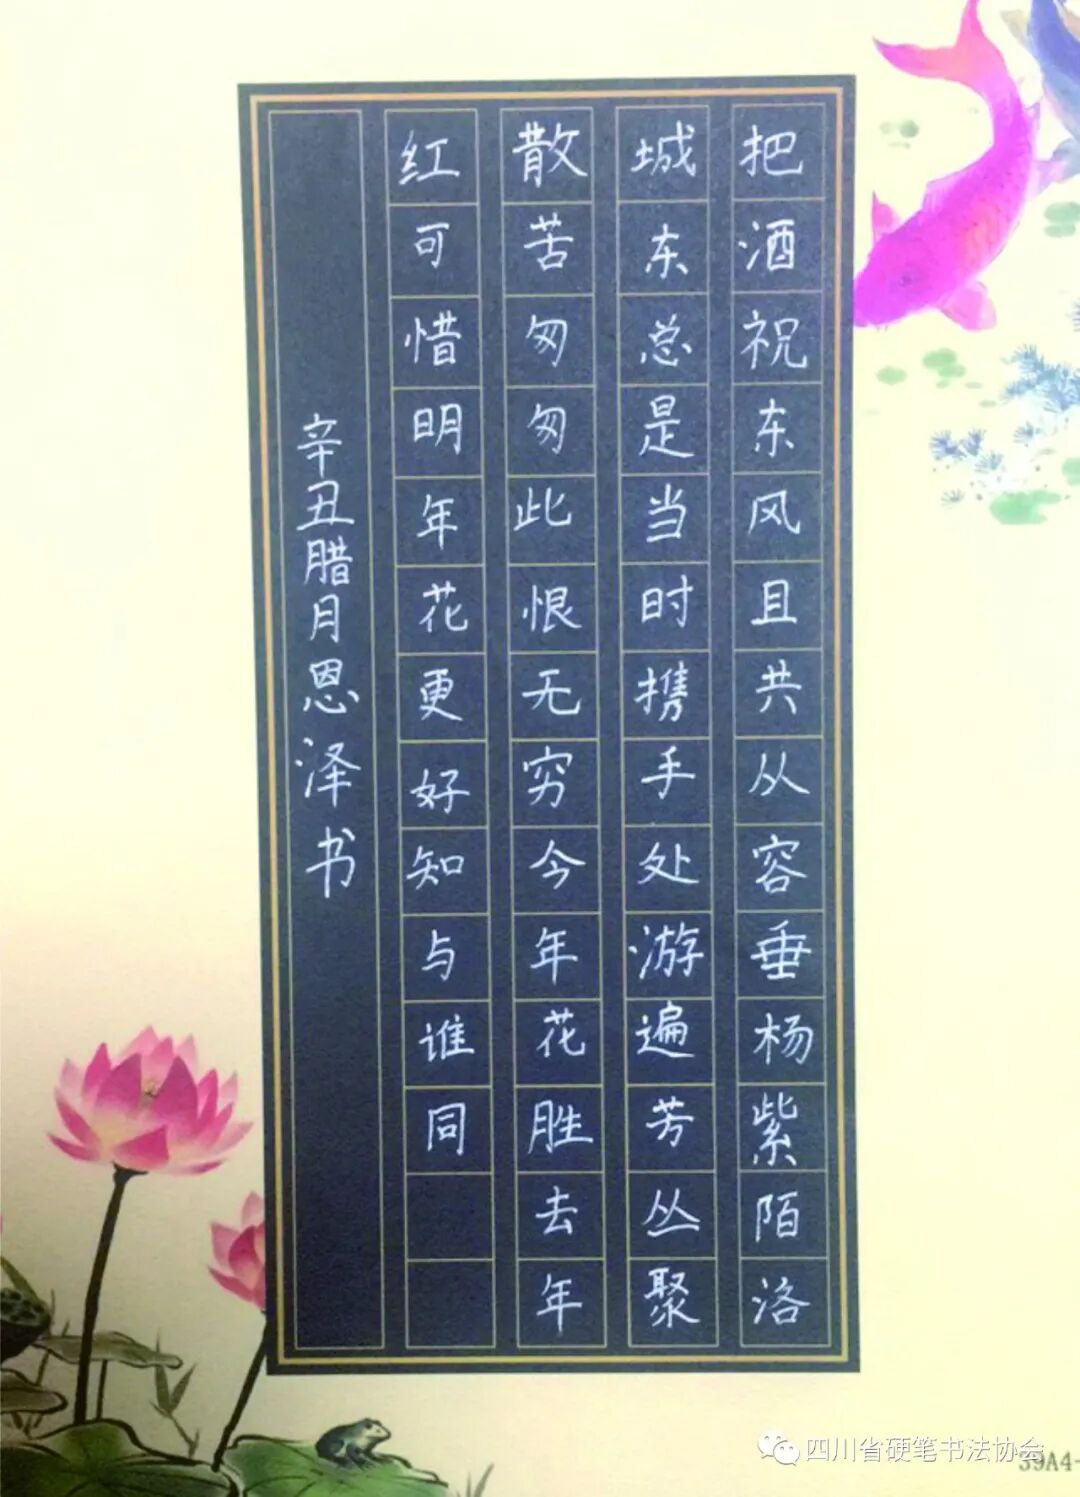 把酒祝东风且共从容垂杨紫陌洛
城东总是当时携手处游遍芳丛聚
散苦匆匆此恨无穷今年花胜去年
红可惜明年花更好知与谁同
辛丑腊月恩泽书
四川省硬笔书法协会
39A4-